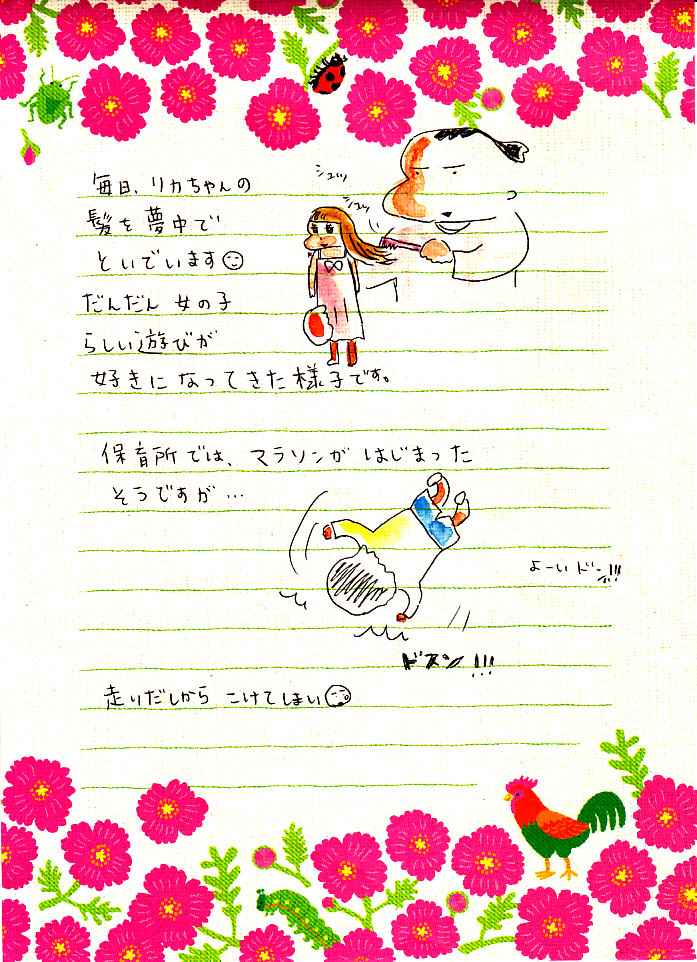 毎日、リカちゃんの
シュッ
シュッ
髪を夢中で
といでいます
だんだん 女の子
らしい遊びが
好きになってきた様子です。
保育所では、マラソンが はじまった
そうですが…
よーいドーン!!!
ドスン!!!
走りだしから こけてしまい